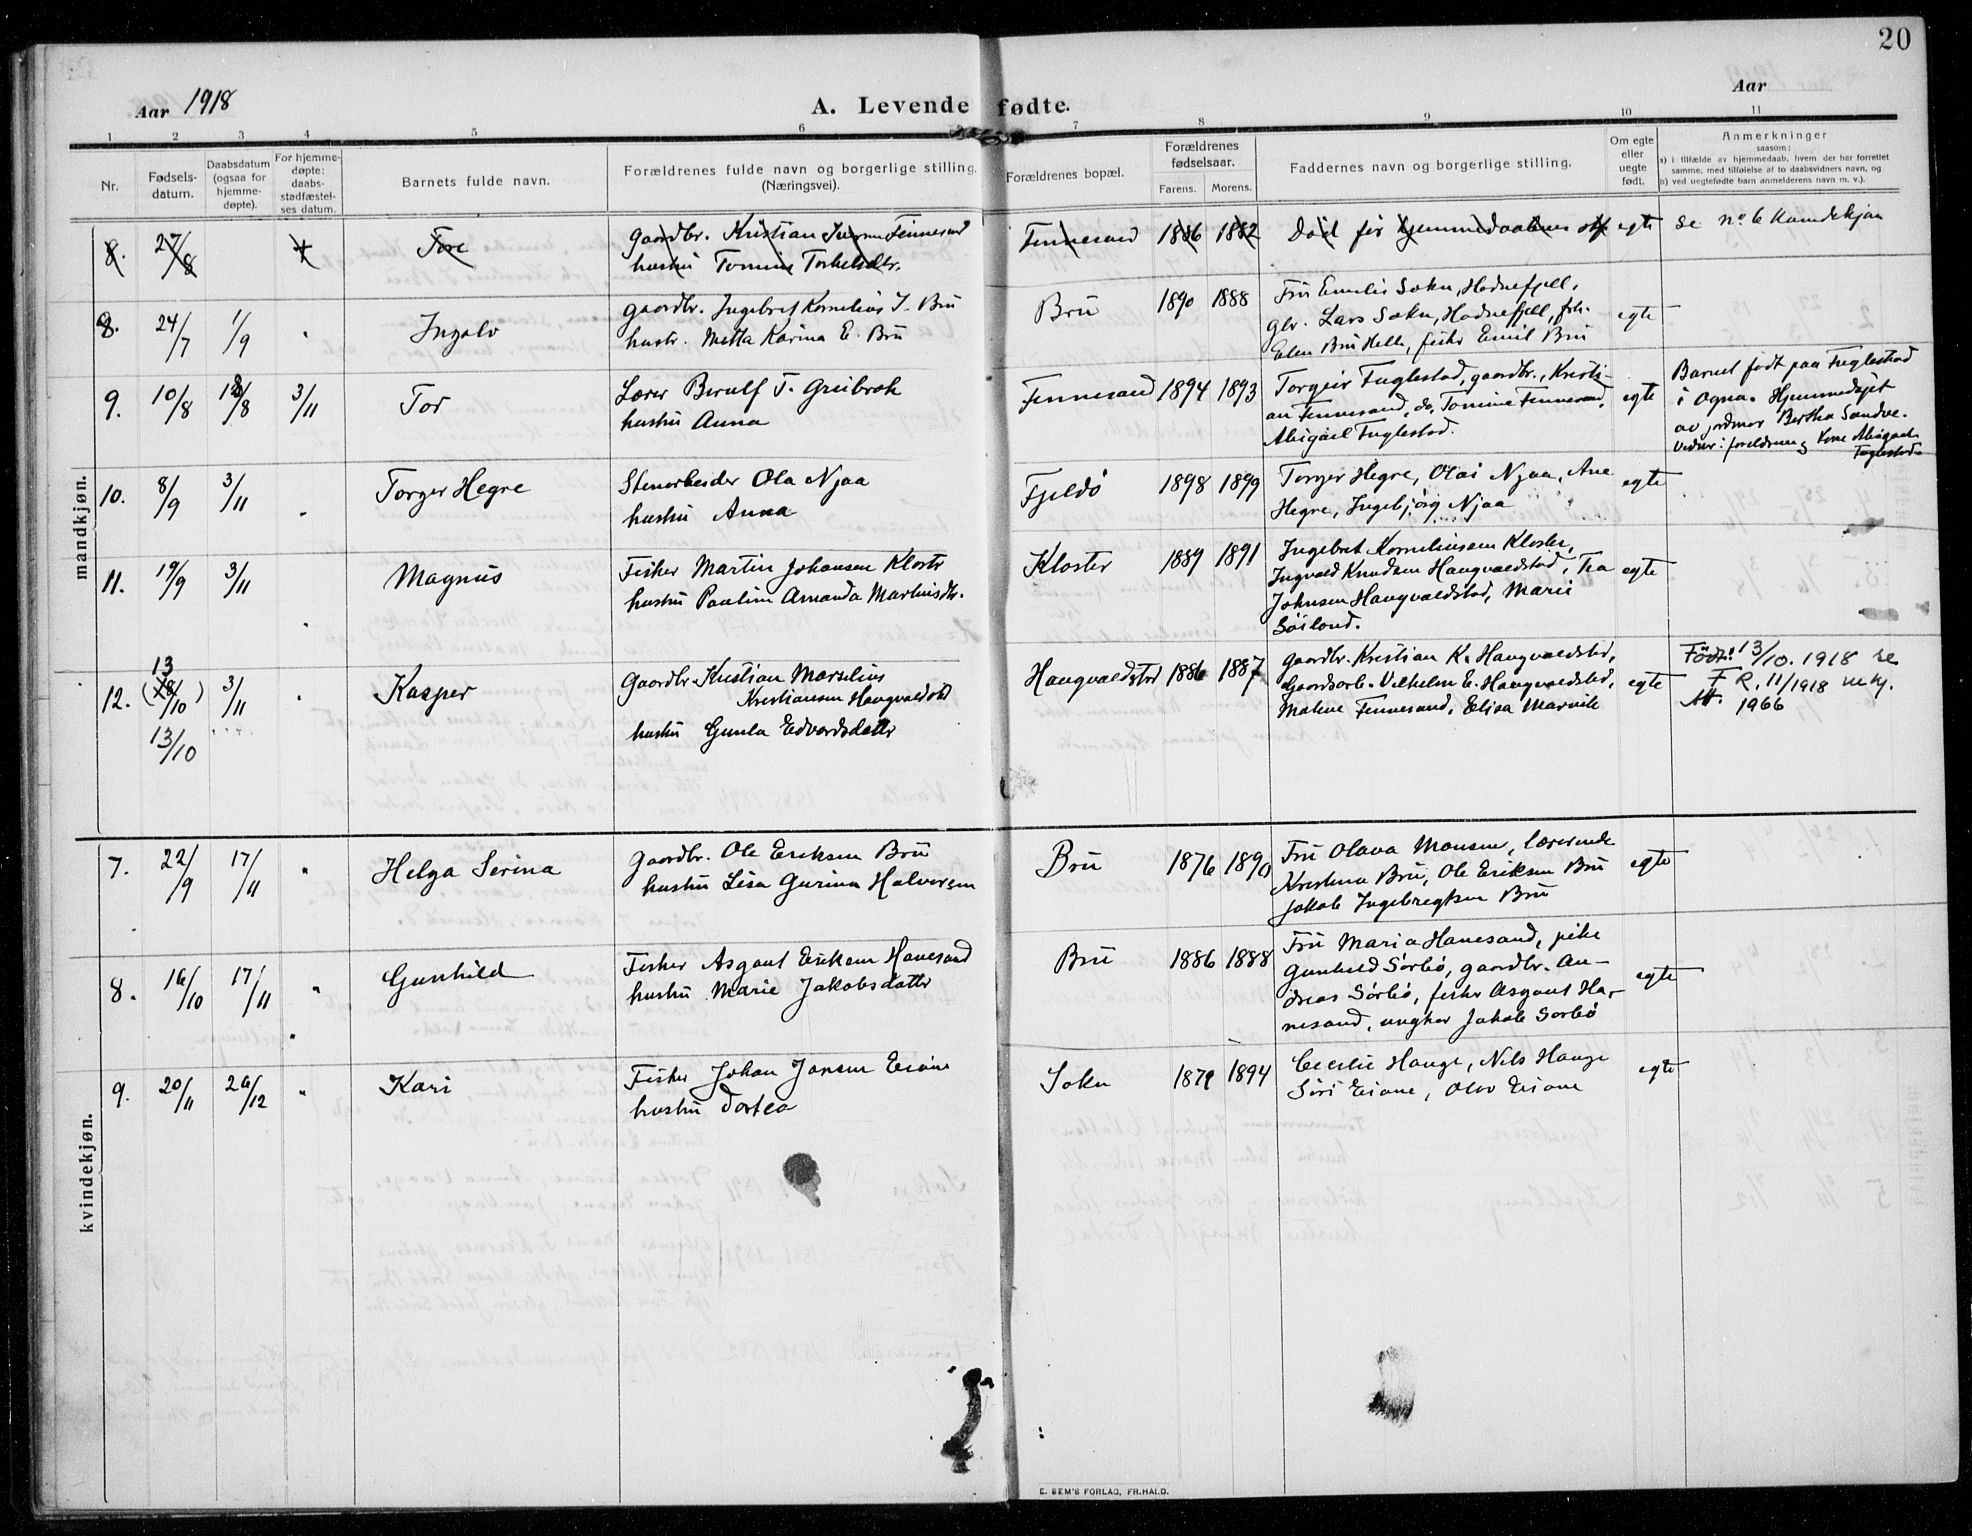 20
Aar 1918
A. Levende fødte.
Aar
1 2 3 4 5 6 7 8 9 10 11
Nr.
Fødsels-
datum.
Daabsdatum
(ogsaa for
hjemme-
døpte).
For hjemme-
døpte:
daabs-
stadfæstel-
ses datum.
Barnets fulde navn.
Forældrenes fulde navn og borgerlige stilling.
(Næringsvei).
Forældrenes bopæl.
Forældrenes
fødselsaar.
Farens. Morens.
Faddernes navn og borgerlige stilling.
Om egte
eller
uegte
født.
Anmerkninger
saasom:
a) i tilfælde av hjemmedaab, hvem der har forrettet
samme, med tilføielse af to daabsvidners navn, og
b) ved uegtefødte barn anmelderens navn m. v.).
mandkjøn.
8. 27/8 Tore
gaardbr. Kristian Fennesand
hustru Tomine Torkelsdtr.
Fennesand 1886 1882 Død før hjemmedaabens egte se no 6
8. 24/7 1/9 " Ingolv
gaardbr. Ingebret Kornelius I. Bru
hustr. Metta Karina E. Bru
Bru 1890 1888
Fru Emilie Sokn, Hodnefjell,
gbr. Lars Sokn, Hodnefjell, frk.
Elen Bru Helle, fisker Emil Bru
egte
9. 10/8 18/8 3/11 Tor
Lærer Berulf T. Grubrok
hustru Anna
Fennesand 1894 1893
Torgeir Fuglestad, gaardbr., Kristi-
an Fennesand, do, Tomine Fennesand,
Abigael Fuglestad.
egte
Barnet født paa Fuglestad
i Ogna. Hjemmedøpt
av jordmor Bertha Sandve.
Vidner: foreldrene og kone Abigael
Fuglestad
10. 8/9 3/11 " Torger Hegre
Stenarbeider Ola Njaa
hustru Anna
Fjeldø 1898 1899
Torger Hegre, Olai Njaa, Ane
Hegre, Ingebjørg Njaa
egte
11. 19/9 3/11 " Magnus
Fisker Martin Johansen Kloster
hustru Pauline Amanda Martinsdtr.
Kloster 1889 1891
Ingebret Korneliussen Kloster,
Ingvald Knudsen Haugvaldstad, Tea
Johnsen Haugvaldstad, Marie
Søiland.
egte
12. 13 (18/10) 13/10 3/11 " Kasper
Gaardbr. Kristian Marselius
Kristiansen Haugvaldstad
hustru Gunla Edvardsdatter
Haugvaldstad 1886 1887
gaardbr. Kristian K. Haugvaldstad,
Gaardsarb. Vilhelm E. Haugvaldstad,
Malene Fennesand, Elisa Marvik
egte
Født: 13/10. 1918 se
F R. 11/1918
1966
kvindekjøn.
7. 22/9 17/11 " Helga Serina
gaardbr. Ole Eriksen Bru
hustru Lisa Gurina Halvorsen
Bru 1876 1890
Fru Olava Monsen, lærerinde
Kristina Bru, Ole Eriksen Bru
Jakob Ingebregtsen Bru
egte
8. 16/10 17/11 " Gunhild
Fisker Asgaut Eriksen Hanesand
hustru Marie Jakobsdatter
Bru 1886 1888
Fru Maria Hanesand, pike
Gunhild Sørbø, gaardbr. An-
dreas Sørbø, fisker Asgaut Ha-
nesand, ungkar Jakob Sørbø
egte
9. 20/11 26/12 " Kari
Fisker Johan Jansen Eiane
hustru Dortea
Sokn 1879 1894
Cecilie Hauge, Nils Hauge
Siri Eiane, Olav Eiane
egte
E. SEM'S FORLAG, FR.HALD.